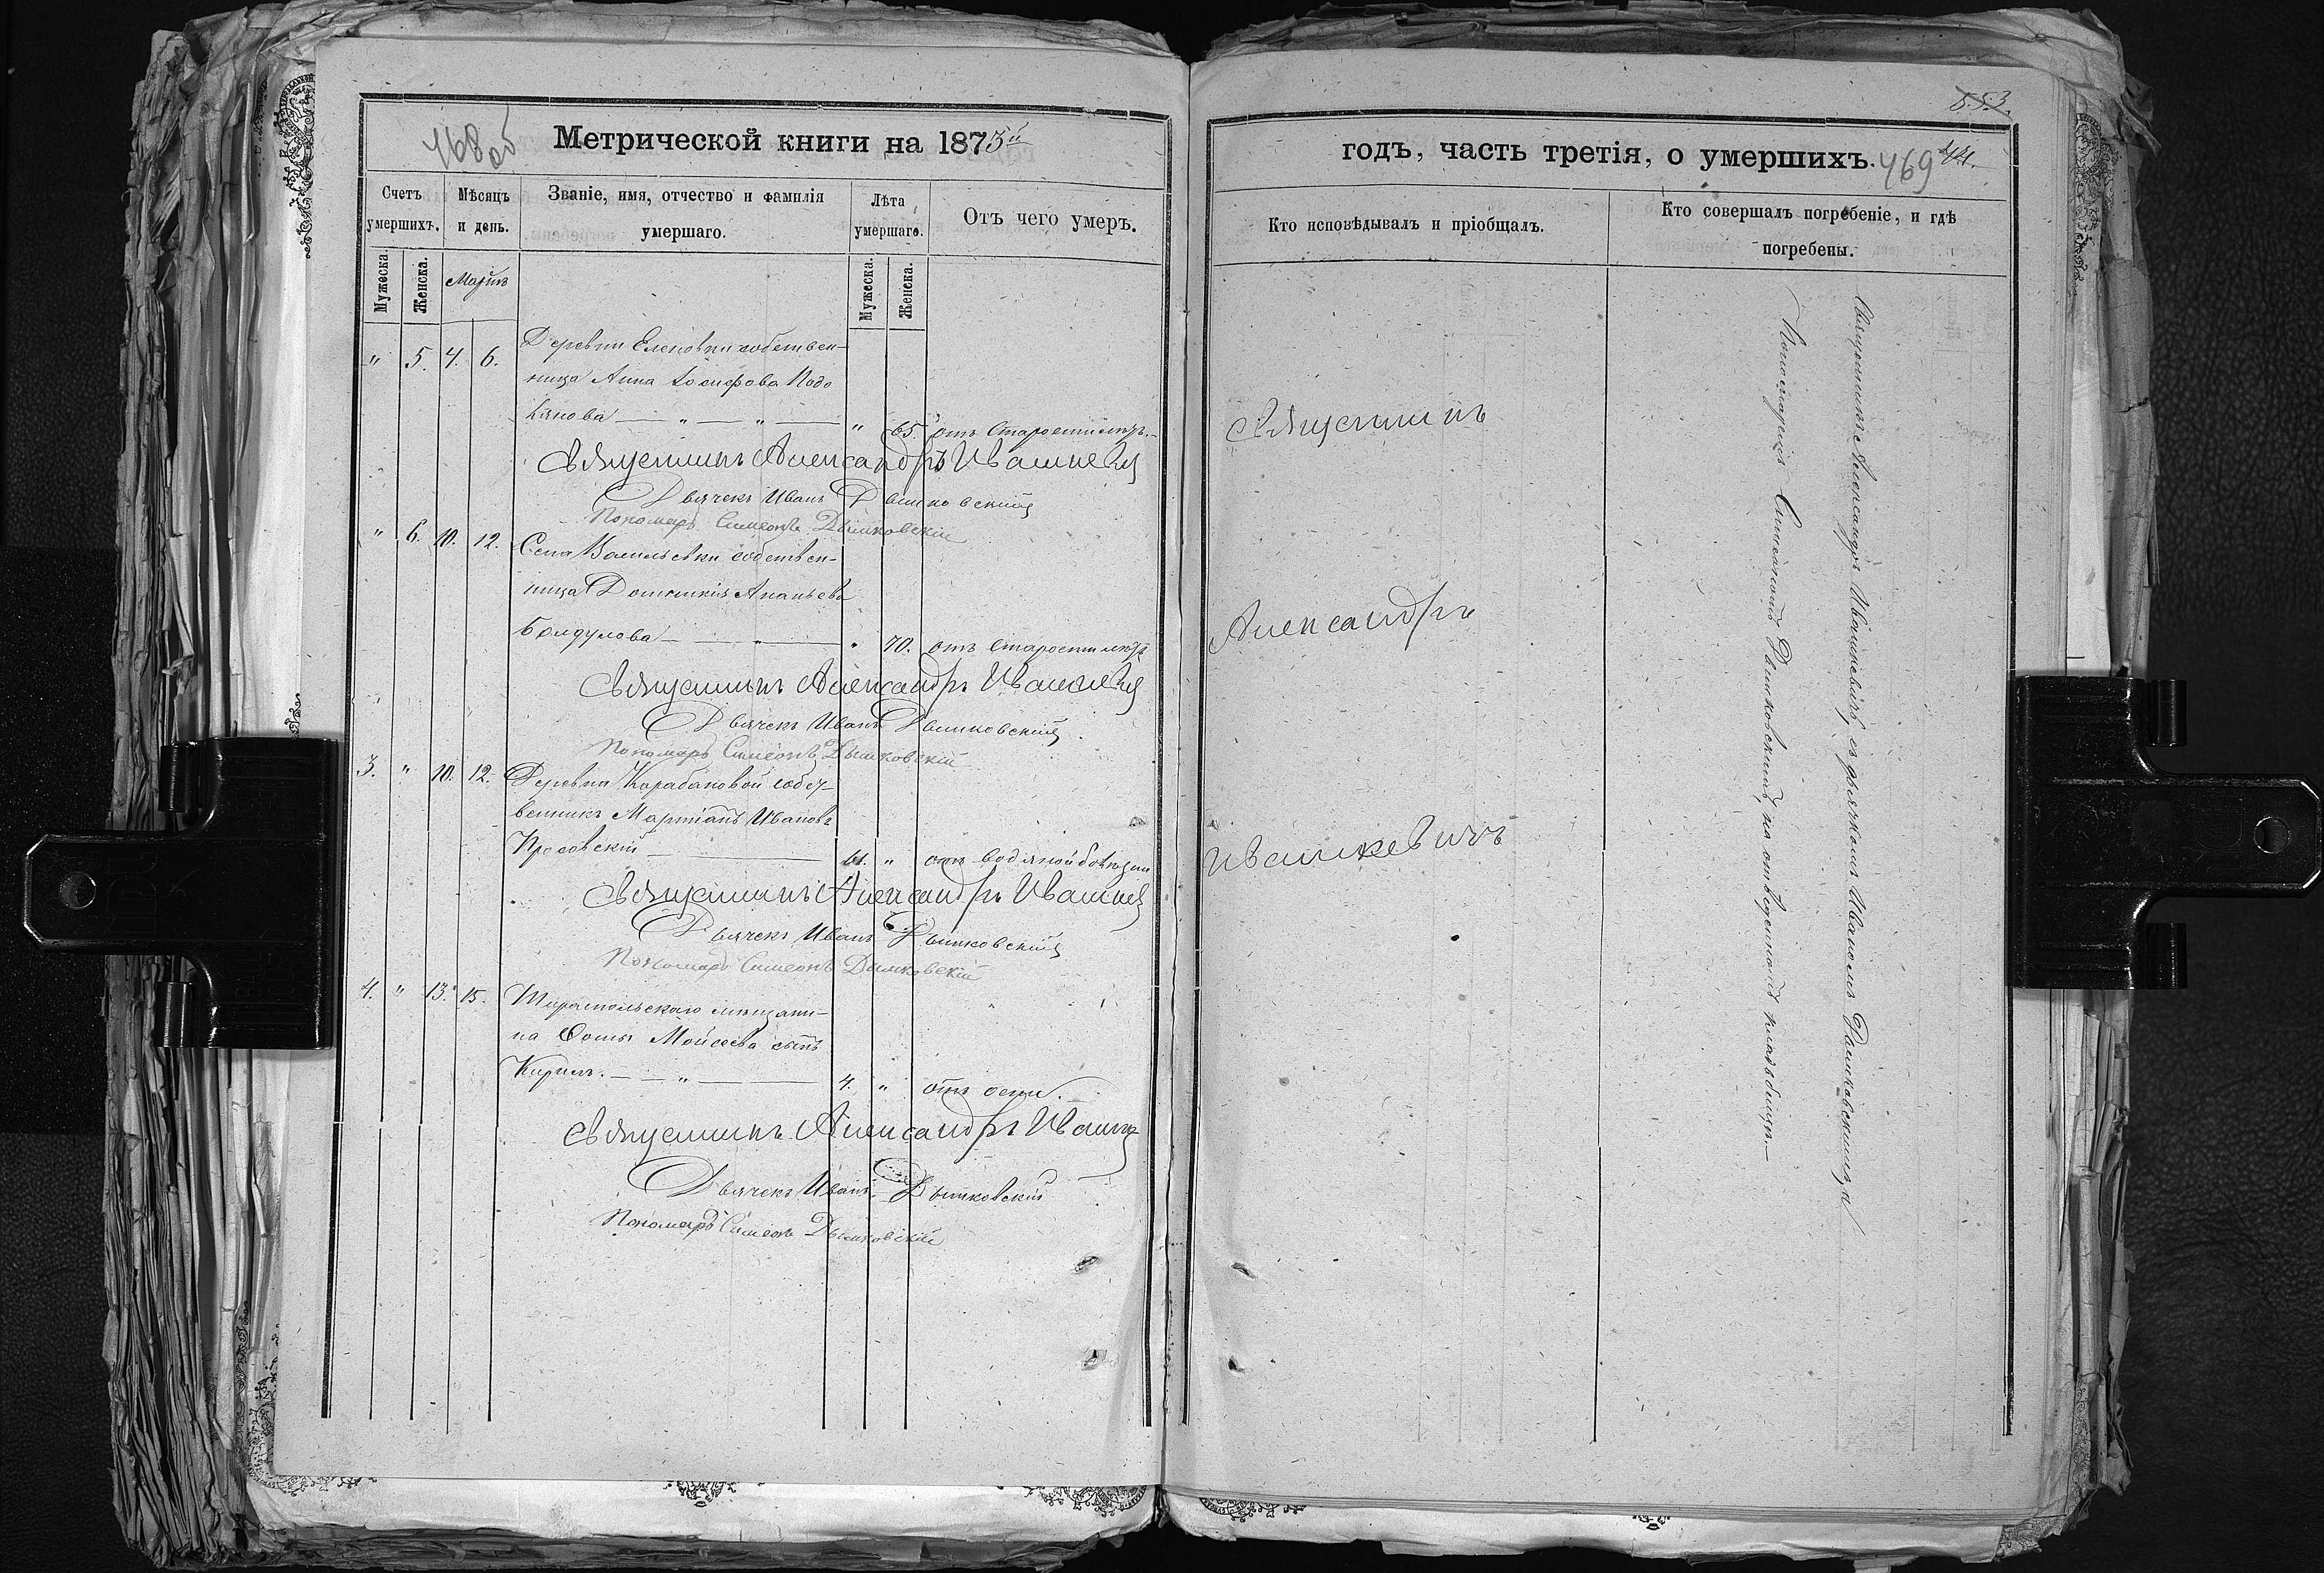 468 об
Метрической книги на 1875й
Счетъ умершихъ.
Мѣсяцъ и день.
Званіе, имя, отчество и фамилія умершаго.
Лѣта умершаго.
Отъ чего умеръ.
Мужеска.
Женска.
Мартъ
Мужеска.
Женска.
" 5. 4. 6. Деревни Еленовки собствен-
ница Анна Іосифова Подо
" 65. отъ Старости
Священникъ Александръ Ивашкевич
Дьячекъ Иванъ Дашковскій
Пономарь Симеонъ Дашковскій
" 6. 10. 12. Села Васильевки собствен-
ница Домникія Ананьева
Болдулова " 70. отъ Старости
Священникъ Александръ Ивашкевич
Дьячекъ Иванъ Дашковскій
Пономарь Симеонъ Дашковскій
3. " 10. 12. Деревни Карабановой собст
венникъ Мартіанъ Ивановъ
Просовскій 61. " отъ водяной болѣзни
Священникъ Александръ Ивашкев
Дьячекъ Иванъ Дашковскій
Пономарь Симеонъ Дашковскій
4. " 13. 15. Тираспольскаго мѣщани-
на Фомы Мойсеева сынъ
Кирилъ. — " — 4. " отъ оспы.
Священникъ Александръ Ивашк
Дьячекъ Иванъ Дашковскій
Пономарь Симеонъ Дашковскій
553.
годъ, часть третія, о умершихъ.
469
44.
Кто исповѣдывалъ и пріобщалъ.
Кто совершалъ погребеніе, и гдѣ погребены.
Священникъ
Александръ
Ивашкевичъ
Священникъ Александръ Ивашкевичъ, съ дьячкомъ Иваномъ Дашковскимъ, и
Пономаремъ Симеономъ Дашковскимъ, на отведенномъ кладбищѣ.—